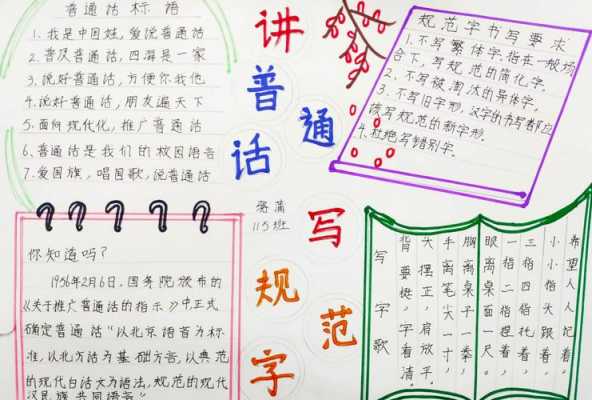 普通话标语
1、我是中国娃,爱说普通话
2、普及普通话,四海是一家
3、说好普通话,方便你我他
4、说好普通话,朋友遍天下
5、面向现代化,推广普通话
6、普通话是我们的校园语言
7、爱国旗,唱国歌,说普通话
讲普通话
写规范字
115班
规范字书写要求
1、不写繁体字.指在一般场
合下,写规范的简化字.
2、不写被淘汰的异体字.
3、不写旧字形,汉字的书写都应
该写规范的新字形.
4、杜绝写错别字.
你知道吗?
1956年2月6日,国务院颁布的
《关于推广普通话的指示》中正式
确定普通话“以北京语音为标
准,以北方话为基础方言,以典范
的现代白话文为语法,规范的现代
汉民族共同语言”
写字歌
希望人人记着
小小指头跟着,
三指四指托着,
一指二指捏着,
眼离桌面一尺.
胸离桌子一拳,
手离笔尖一寸,
大摆正,肩放平,
背要挺,字看清,